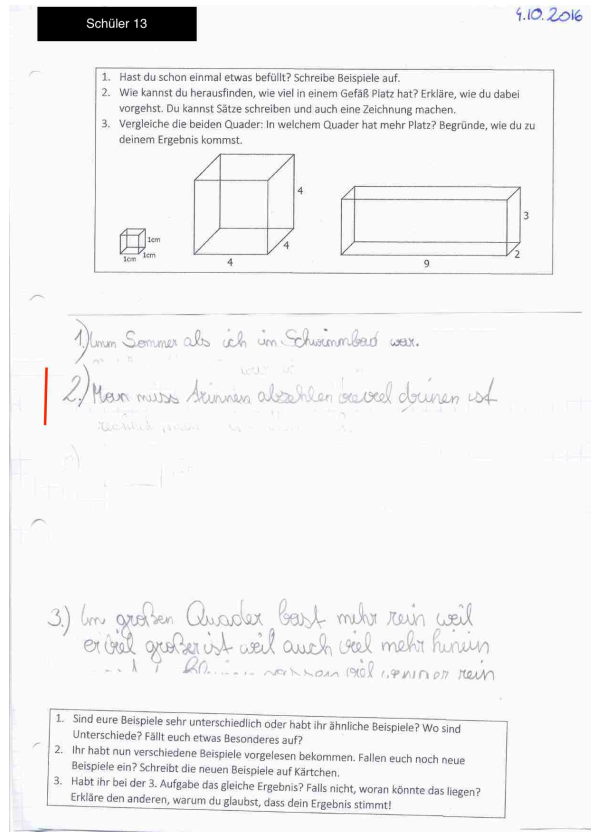 Schüler 13
4.10.2016
1. Hast du schon einmal etwas befüllt? Schreibe Beispiele auf.
2. Wie kannst du herausfinden, wie viel in einem Gefäß Platz hat? Erkläre, wie du dabei
vorgehst. Du kannst Sätze schreiben und auch eine Zeichnung machen.
3. Vergleiche die beiden Quader: In welchem Quader hat mehr Platz? Begründe, wie du zu
deinem Ergebnis kommst.
1cm
1cm
1cm
4
4
4
3
2
9
1.) Imm Sommer als ich im Schwimmbad war.
2.) Man muss trinnen abzehlen wieviel drinen ist
3.) Im großen Quader bast mehr rein weil
er viel großer ist weil auch viel mehr hinein
rein
1. Sind eure Beispiele sehr unterschiedlich oder habt ihr ähnliche Beispiele? Wo sind
Unterschiede? Fällt euch etwas Besonderes auf?
2. Ihr habt nun verschiedene Beispiele vorgelesen bekommen. Fallen euch noch neue
Beispiele ein? Schreibt die neuen Beispiele auf Kärtchen.
3. Habt ihr bei der 3. Aufgabe das gleiche Ergebnis? Falls nicht, woran könnte das liegen?
Erkläre den anderen, warum du glaubst, dass dein Ergebnis stimmt!